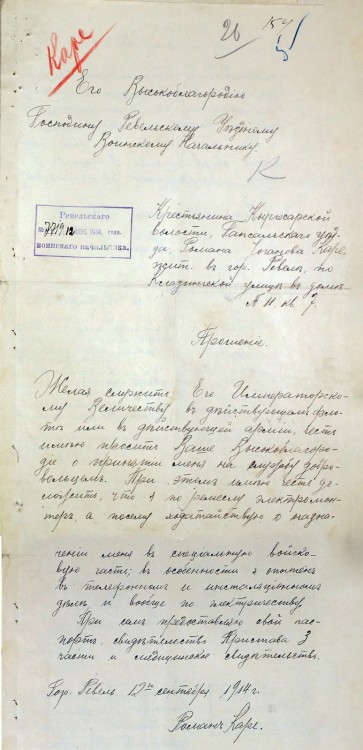 Каре
26
154
Его Высокоблагородію
Господину Ревельскому Уѣздному
Воинскому Начальнику.
К
Ревельскаго
воинскаго начальника.
Крестьянина Кыргесарской
волости, Гапсальского уѣз-
да, Романа Каре,
жит. въ гор. Ревелѣ, по
улицѣ въ домѣ
№ 11. кв. 7.
Прошеніе.
Желая служить Его Императорско-
му Величеству въ дѣйствующемъ фло-
тѣ или въ дѣйствующей арміи, честь
имѣю просить Ваше Высокоблагоро-
діе о принятіи меня на службу добро-
вольцемъ. При этомъ имѣю честь до-
ложить, что я по ремеслу электромон-
теръ, а посему ходатайствую о назна-
ченіи меня въ спеціальную войско-
вую часть; въ особенности я опытенъ
въ телефонномъ и инсталяціонномъ
дѣлѣ и вообще по электричеству.
При семъ предоставляю свой пас-
портъ, свидѣтельство Пристава 3
части и медицинское свидѣтельство.
Гор. Ревель 12го сентября 1914 г.
Романъ Каре.